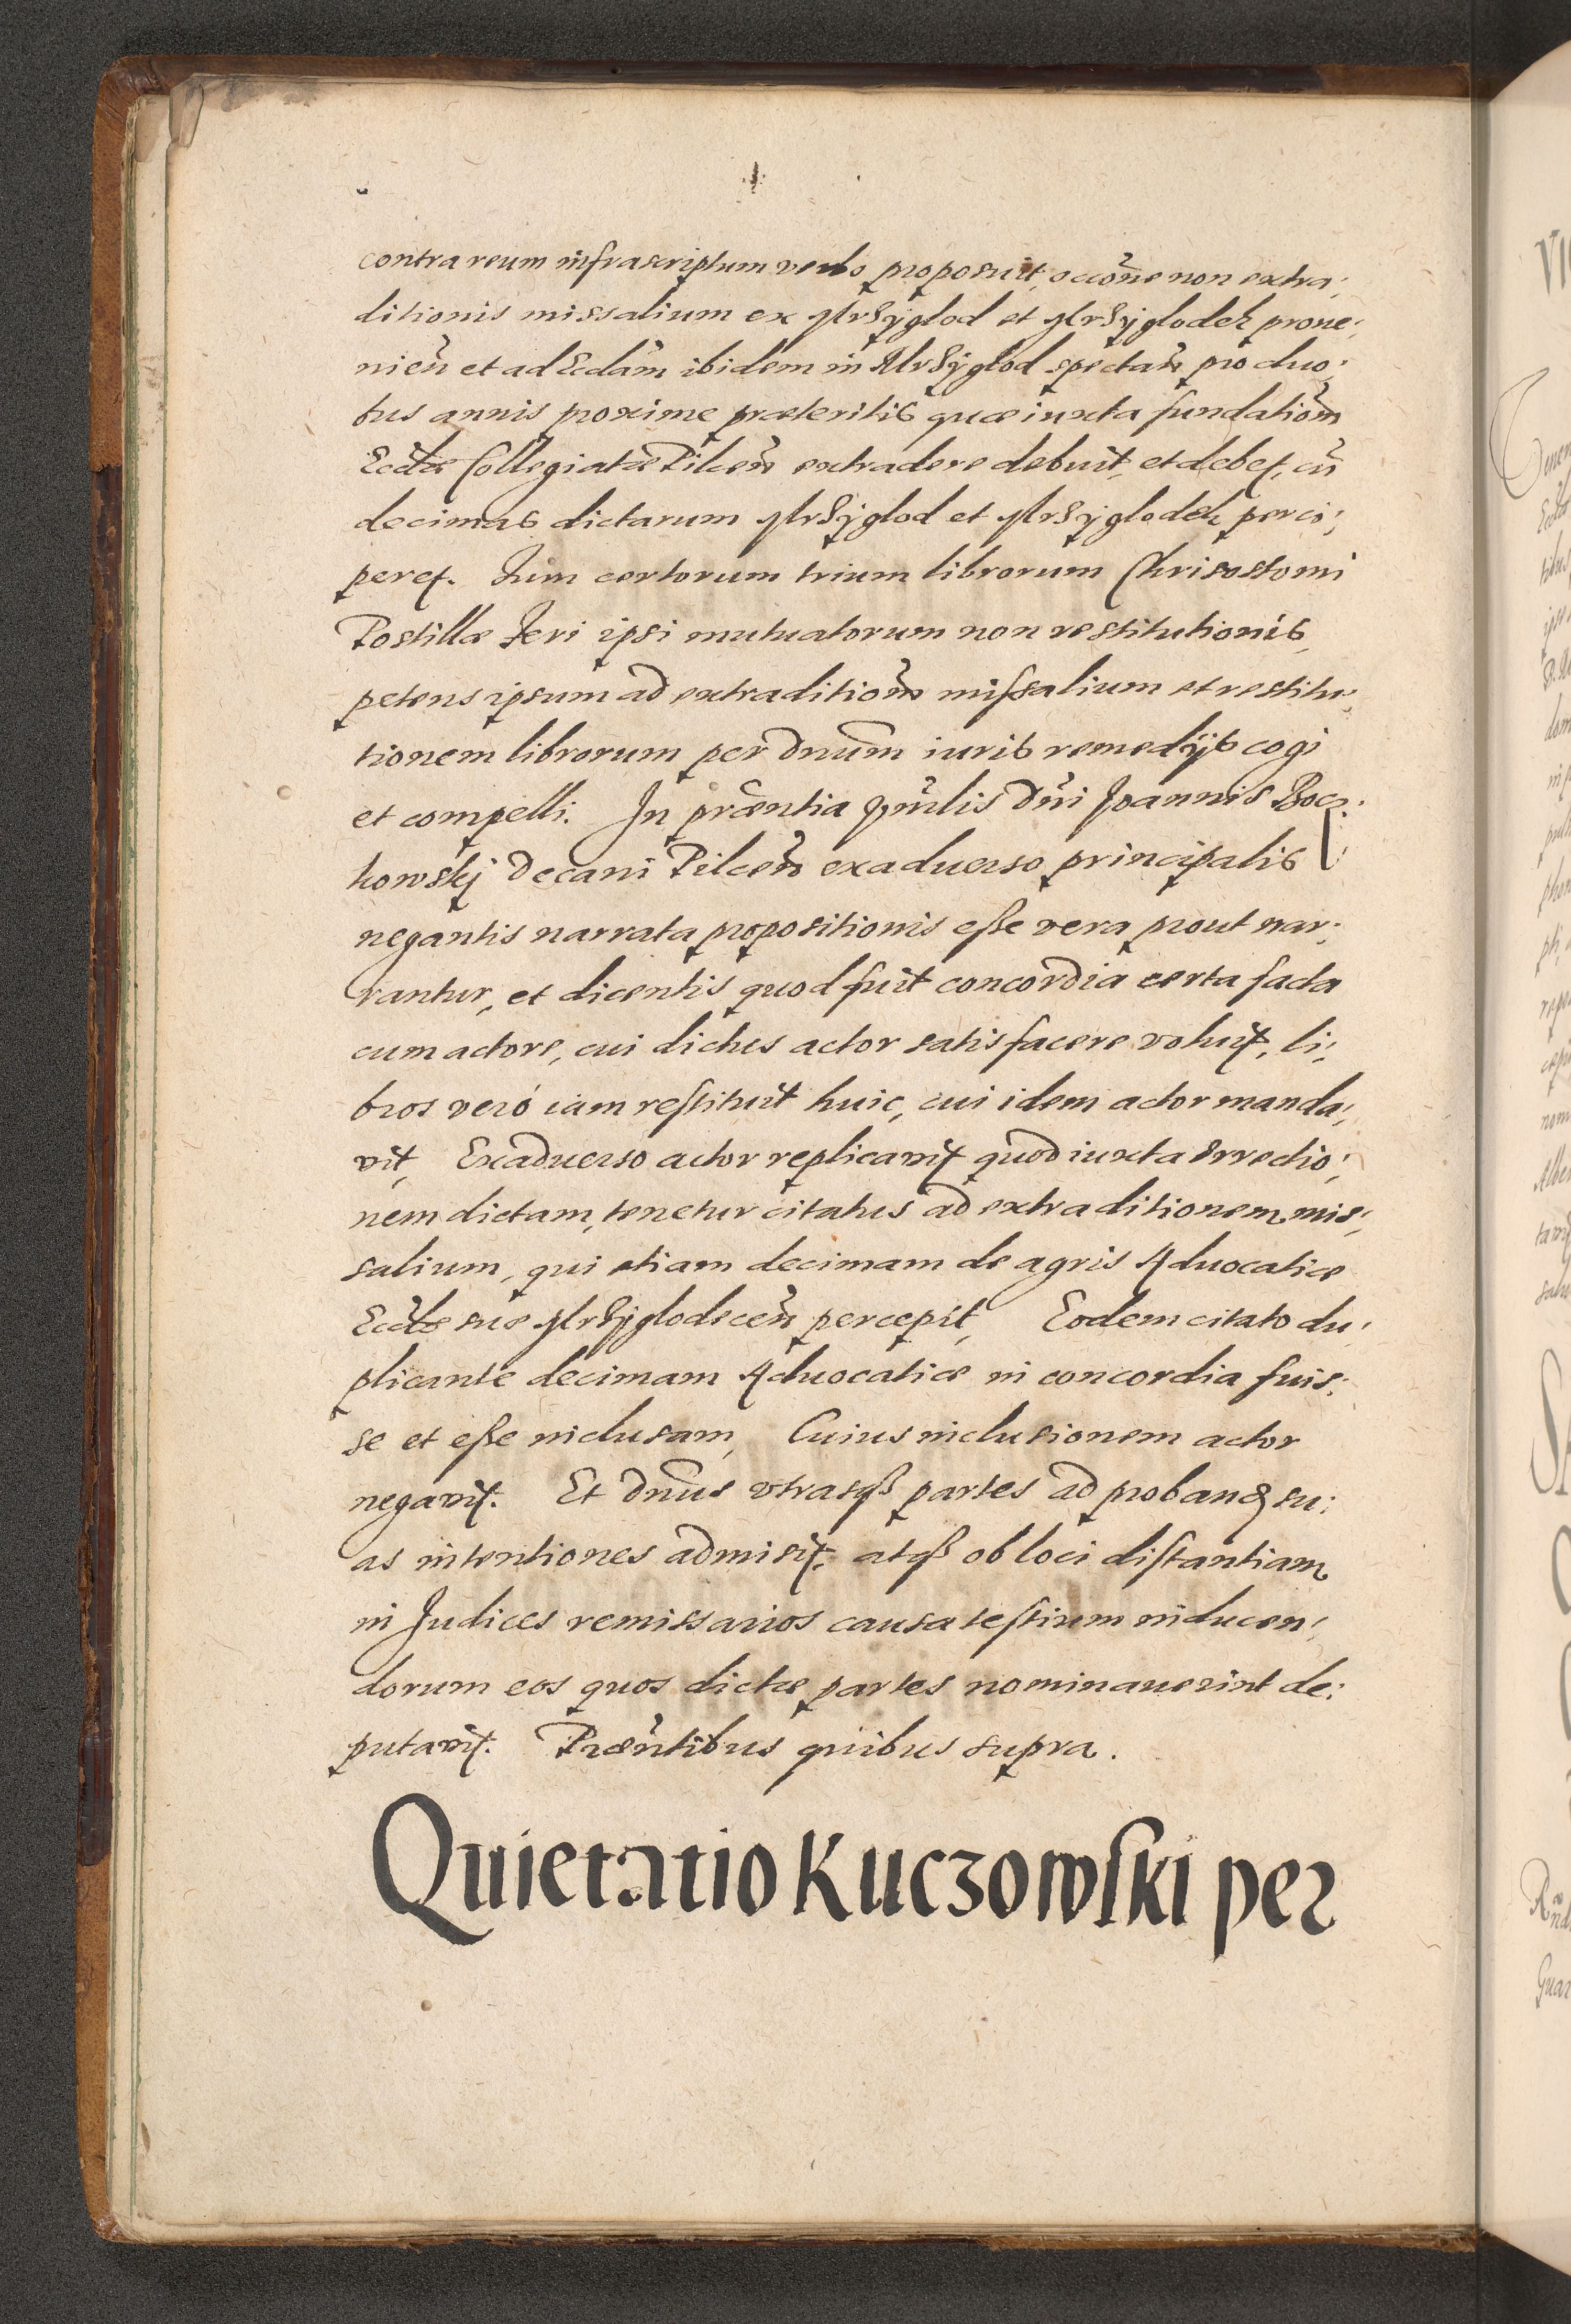 contra reum infrascriptum verbo proposuit, occõne non extra:
ditionis missalium ex Mrzÿglod et Mrzÿglodek proue:
nieñ et ad Eccłam ibidem in Mrzÿglod spectañ pro duo:
bus annis proxime præteritis quæ iuxta fundatioñ
Ecctæ Collegiatæ Pilceñ extradere debuit, et debet, cũ
decimas dictarum Mrzÿglod et Mrzÿglodek perci:
peret. Tum certorum trium librorum Chrisostomi
Postillæ Feri ipsi mutuatorum non restitutionis,
petens ipsum ad extraditioñ missalium et restitu:
tionem librorum per dnum iuris remedijs cogi
et compelli. In præntia Vnrlis dni Joannis Bocz:
kowskj Decani Pilceñ ex aduerso principalis
negantis narrata propositionis esse vera prout nar:
rantur, et dicentis quod fuit concordia certa facta
cum actore, cui dictus actor satisfacere voluit, li:
bros veró iam restituit huic, cui idem actor manda:
vit, Ex aduerso actor replicavit quod iuxta Erectio:
nem dictam, tenetur citatus ad extraditionem mis:
salium, qui etiam decimam de agris Aduocatiæ
Ecctæ suæ Mrzÿglodeceñ percepit, Eodem citato du:
plicante decimam Aduocatiæ in concordia fuis:
se et esse inclusam, Cuius inclusionem actor
negavit. Et dnus vtrasqꝫ partes ad proband su:
as intentiones admisit, atqꝫ ob loci distantiam
in Judices remissarios causa testium inducen:
dorum eos quos dictæ partes nominauerint de:
putavit. Præntibus quibus supra.
Quietatio Kuczowski per